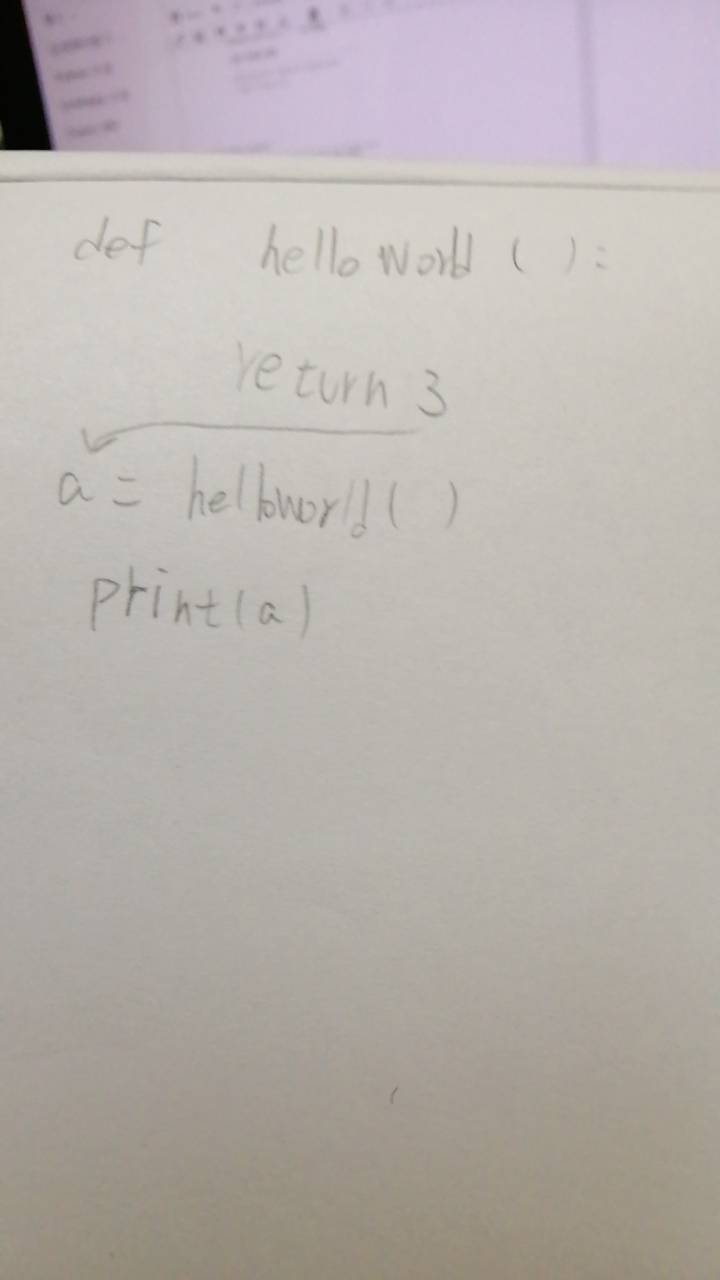 def helloworld ( ):
return 3
a = helloworld( )
print(a)